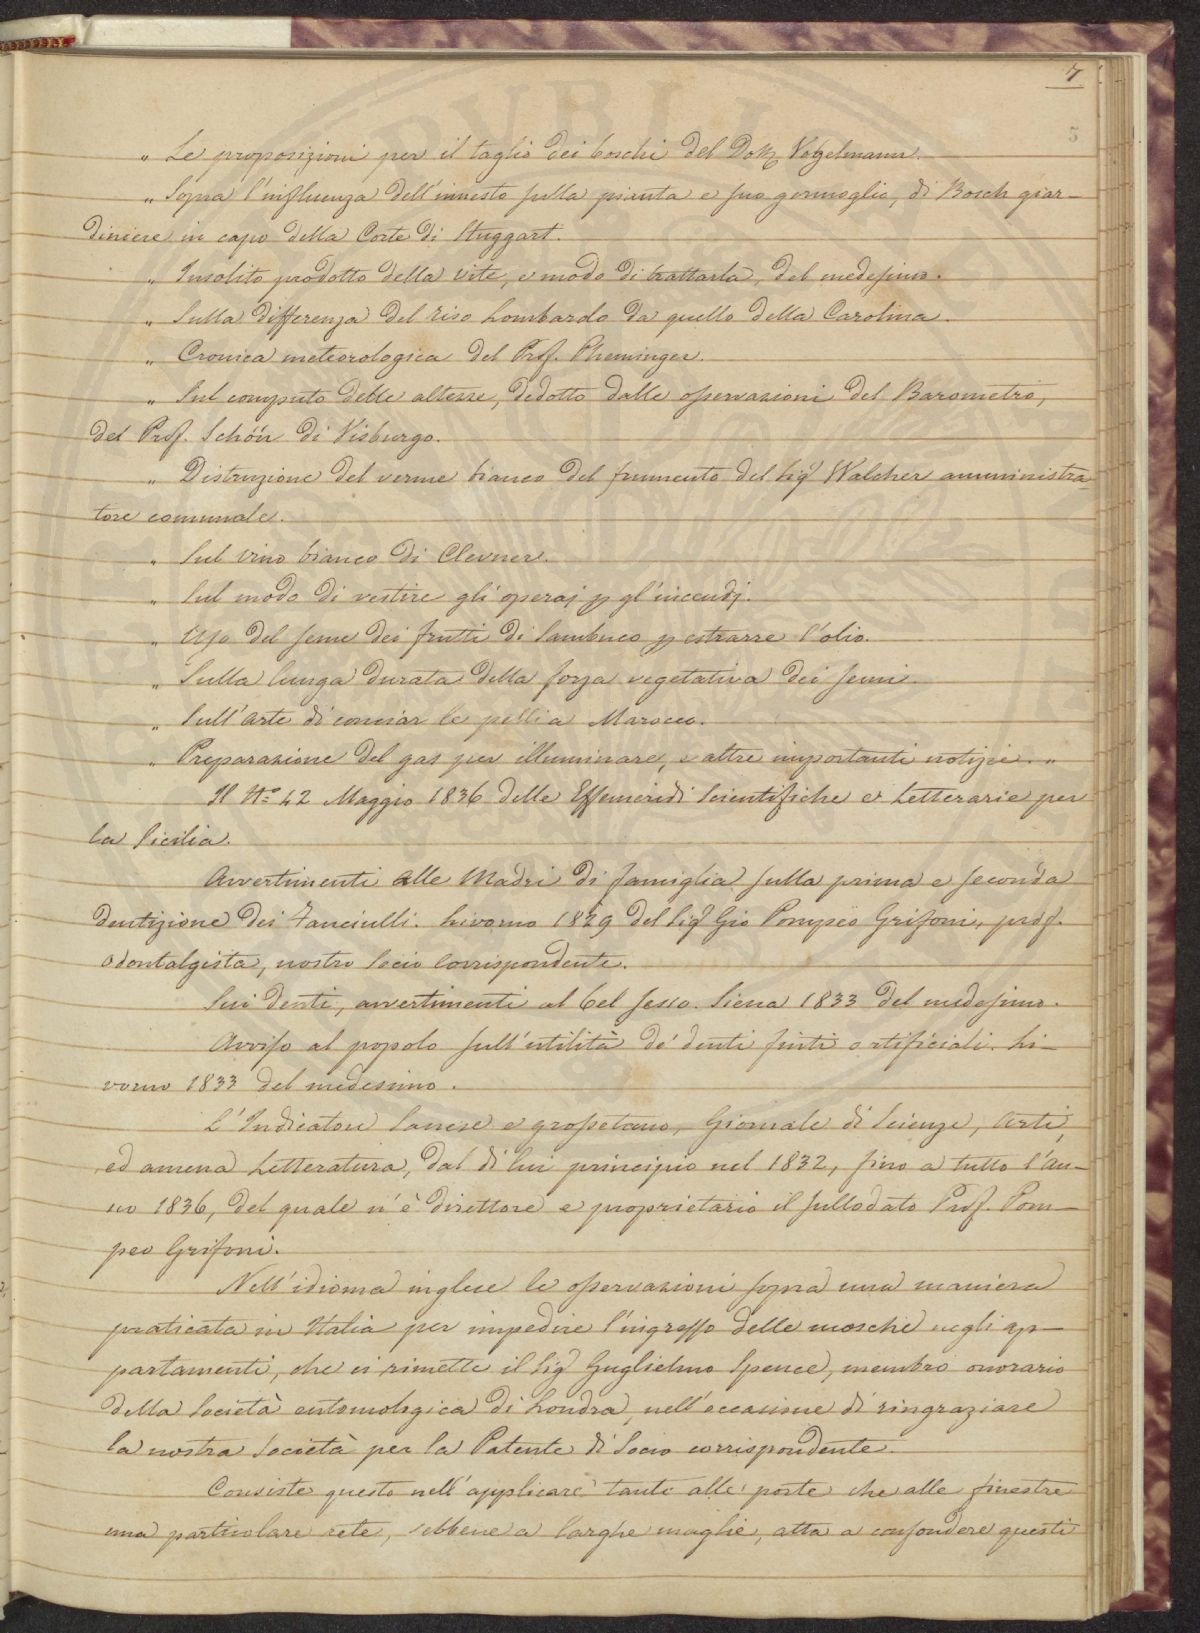 7
5
„ Le proposizioni per il taglio dei boschi del Dott. Vogelmann.
„ Sopra l'influenza dell'innesto sulla pianta e suo germoglio, di Bosch giar-
diniere in capo della Corte di Stuggart.
„ Insolito prodotto della vite, e modo di trattarla, del medesimo.
„ Sulla differenza del riso Lombardo da quello della Carolina.
„ Cronica meteorologica del Prof. Pheminger.
„ Sul computo delle altezze, dedotto dalle osservazioni del Barometro,
del Prof. Schön di Visburgo.
„ Distruzione del verme bianco del frumento del Sigr Walcher amministra-
tore comunale.
„ Sul vino bianco di Clevner.
„ Sul modo di vestire gli operaj p gl'incendj.
„ Uso del seme dei frutti di Sambuco p estrarre l'olio.
„ Sulla lunga durata della forza vegetativa dei semi.
„ Sull'arte di conciar le pelli a Marocco.
„ Preparazione del gas per illuminare, e altre importanti notizie. „
Il No 42 Maggio 1836 delle Effemeridi Scientifiche e Letterarie per
la Sicilia.
Avvertimenti alle Madri di famiglia sulla prima e seconda
dentizione dei Fanciulli. Livorno 1829 del Sigr Gio Pompeo Grifoni, prof.
odontalgista, nostro Socio Corrispondente.
Sui denti, avvertimenti al bel sesso. Siena 1833 del medesimo.
Avviso al popolo sull'utilità de' denti finti artificiali. Li-
vorno 1833 del medesimo.
L'Indicatore Sanese e grossetano, Giornale di Scienze, Arti,
ed amena Letteratura, dal di lui principio nel 1832, fino a tutto l'an-
no 1836, del quale n'è direttore e proprietario il sullodato Prof. Pom-
peo Grifoni.
Nell'idioma inglese le osservazioni sopra una maniera
praticata in Italia per impedire l'ingresso delle mosche negli ap-
partamenti, che ci rimette il Sigr Guglielmo Spence, membro onorario
della Società entomologica di Londra, nell'occasione di ringraziare
la nostra Società per la Patente di Socio corrispondente.
Consiste questo nell'applicare tanto alle porte che alle finestre
una particolare rete, sebbene a larghe maglie, atta a confondere questi